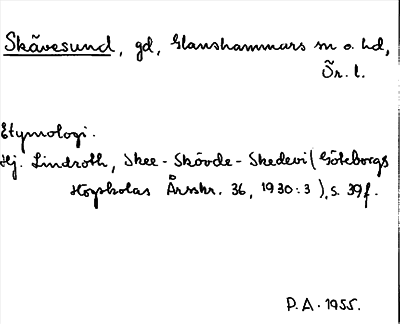 Skävesund, gd, Glanshammars sn o. hd,
Ör. l.
Etymologi.
Hj. Lindroth, Skee - Skövde - Skedevi (Göteborgs
Högskolas Årsskr. 36, 1930:3), s. 39f.
P.A. 1955.